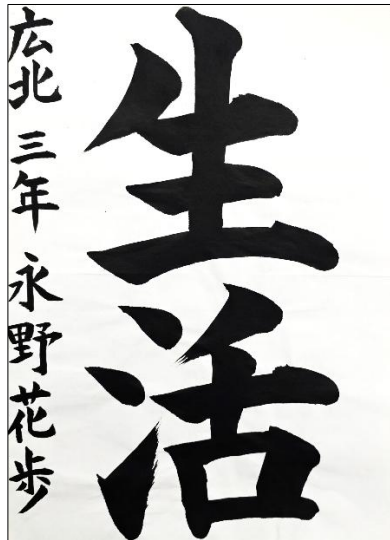 生活
広北 三年 永野花歩